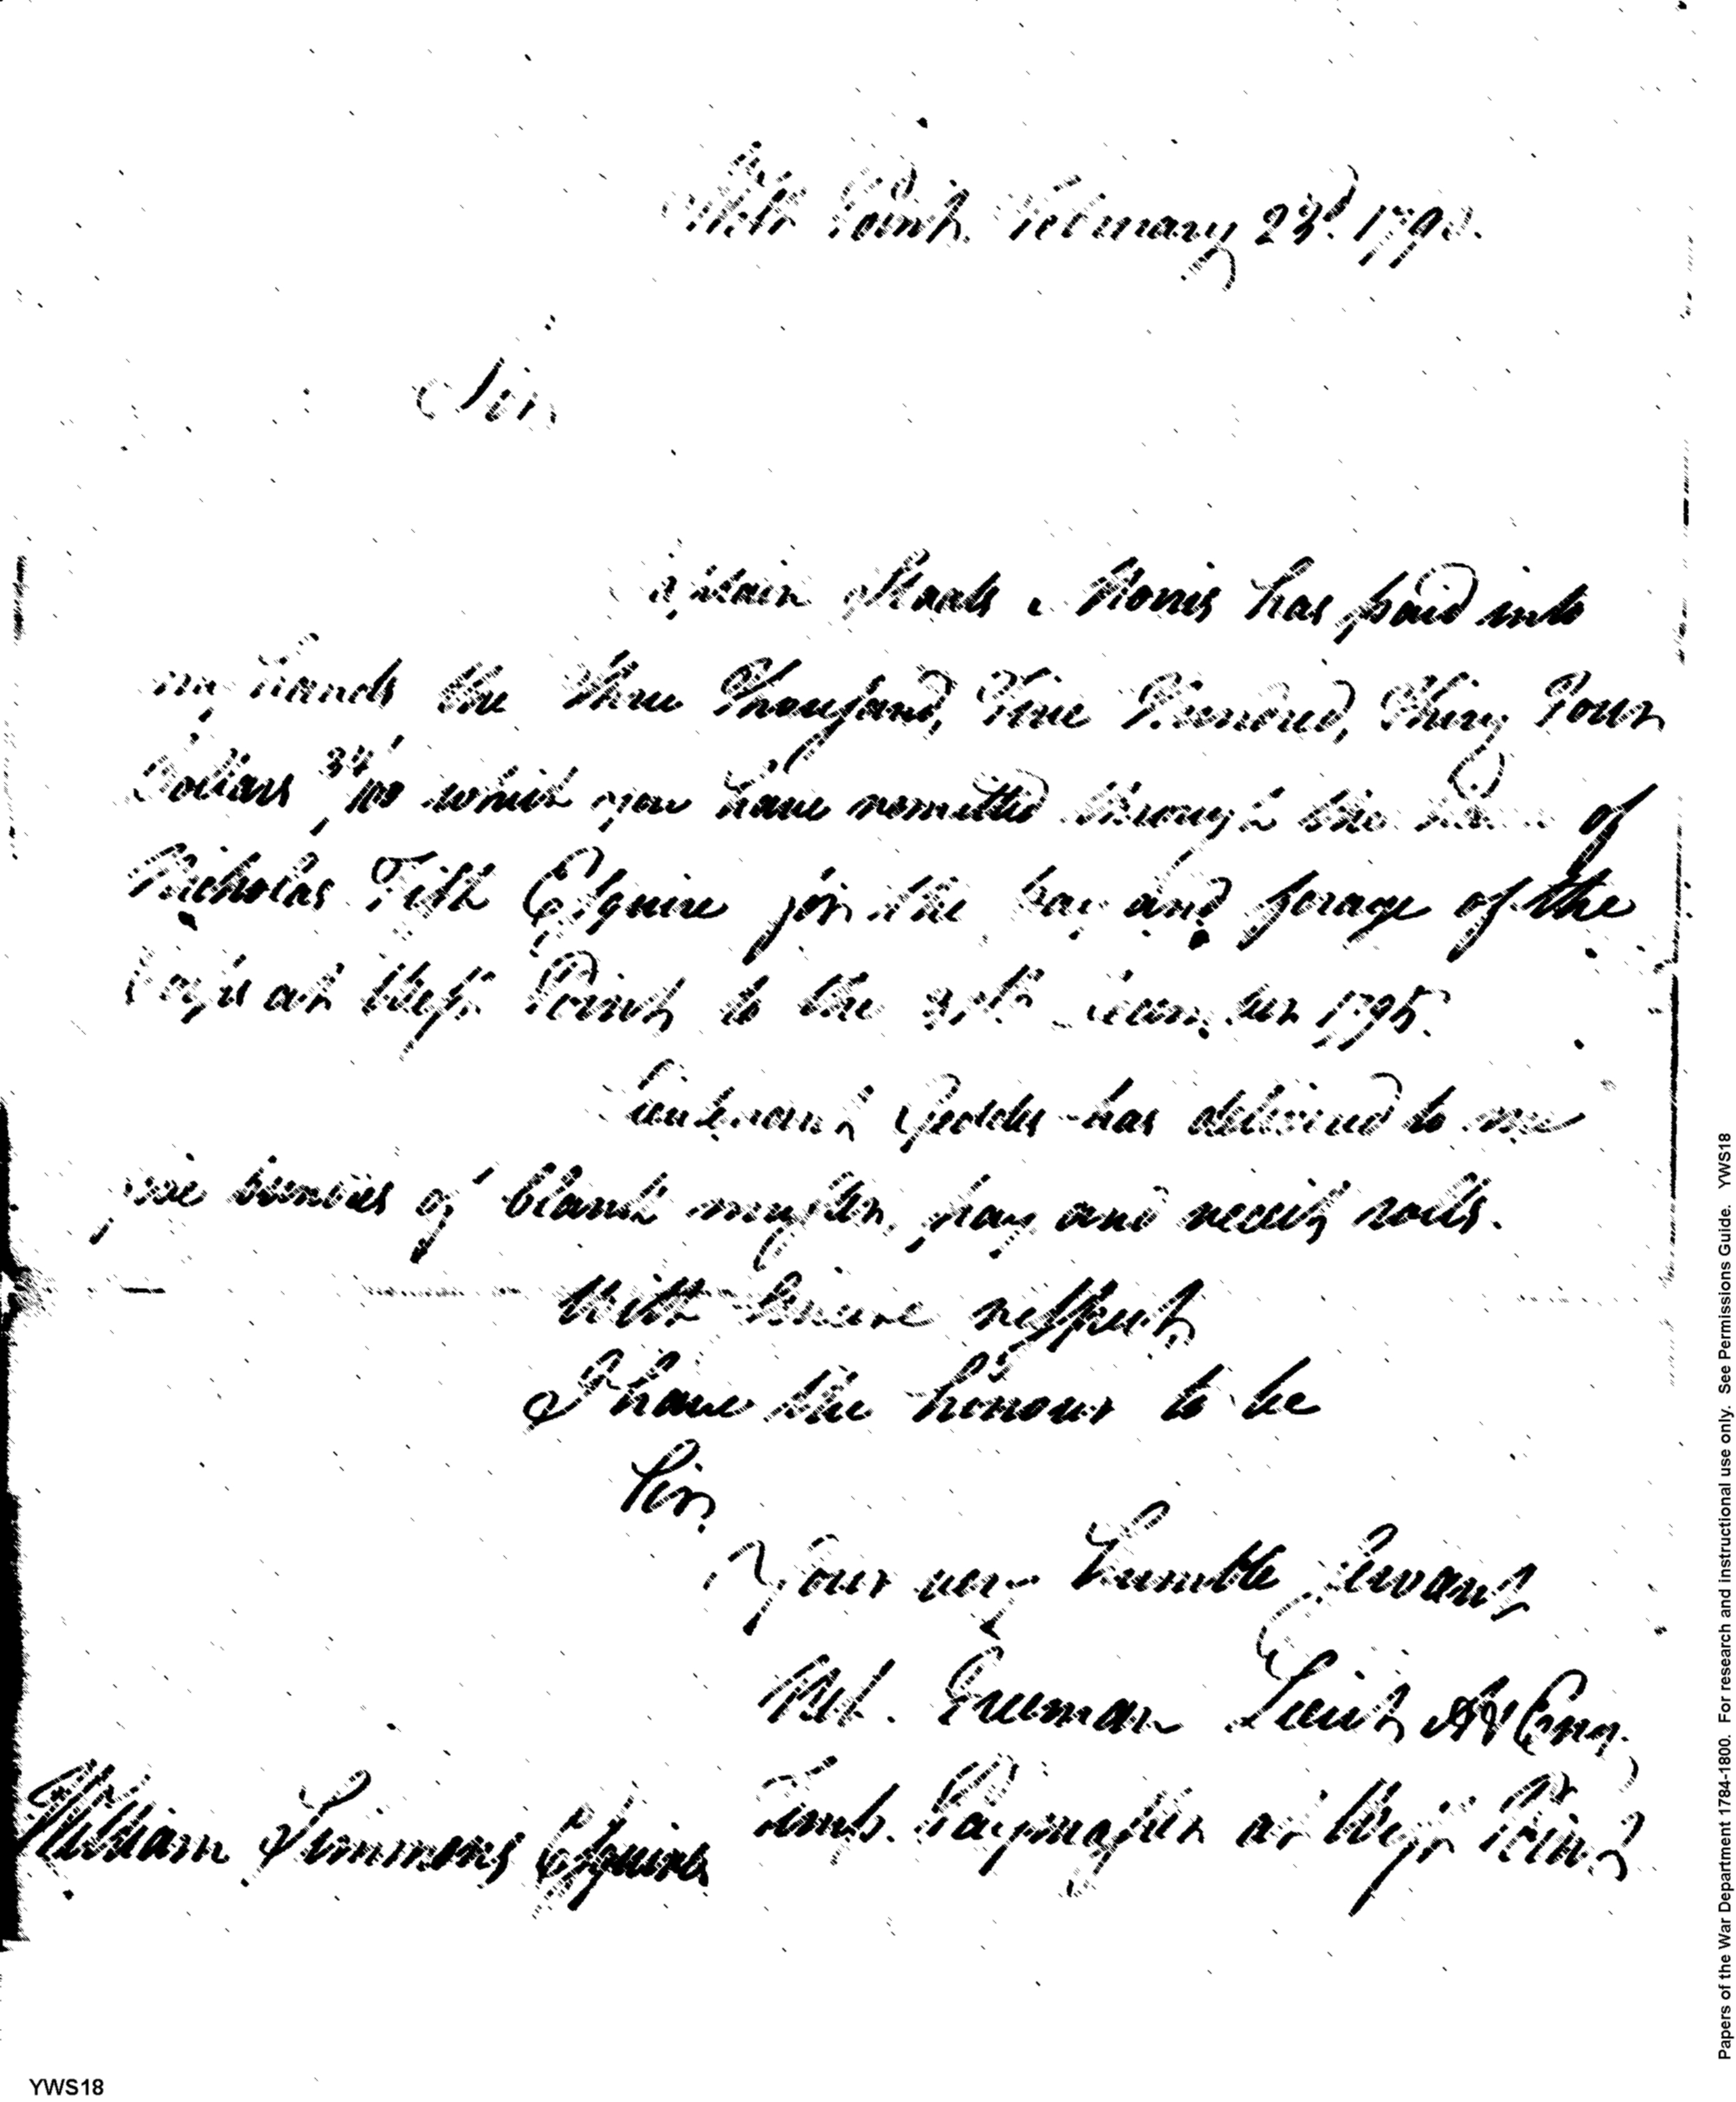 West Point February 23d. 179
Sir
Captain Staats Morris has paid into
my hands the three Thousand, Five Hundred, Thirty Four
Dollars 34/100 which you have remitted through the hands of
Nicholas Fish Esquire for the pay and forage of the
at West Point to the 31st December 1795.
Lieutenant Geddes has delivered to me
five bundles of blank muster, pay and receipt rolls.
With sincere respect
I have the honour to be
Sir
Your very humble servant
Nel. Freeman Lieut A & Eng.
Temp. Paymaster at West Point
William Simmons Esquire
YWS18
Papers of the War Department 1784-1800. For research and instructional use only. See Permissions Guide. YWS18